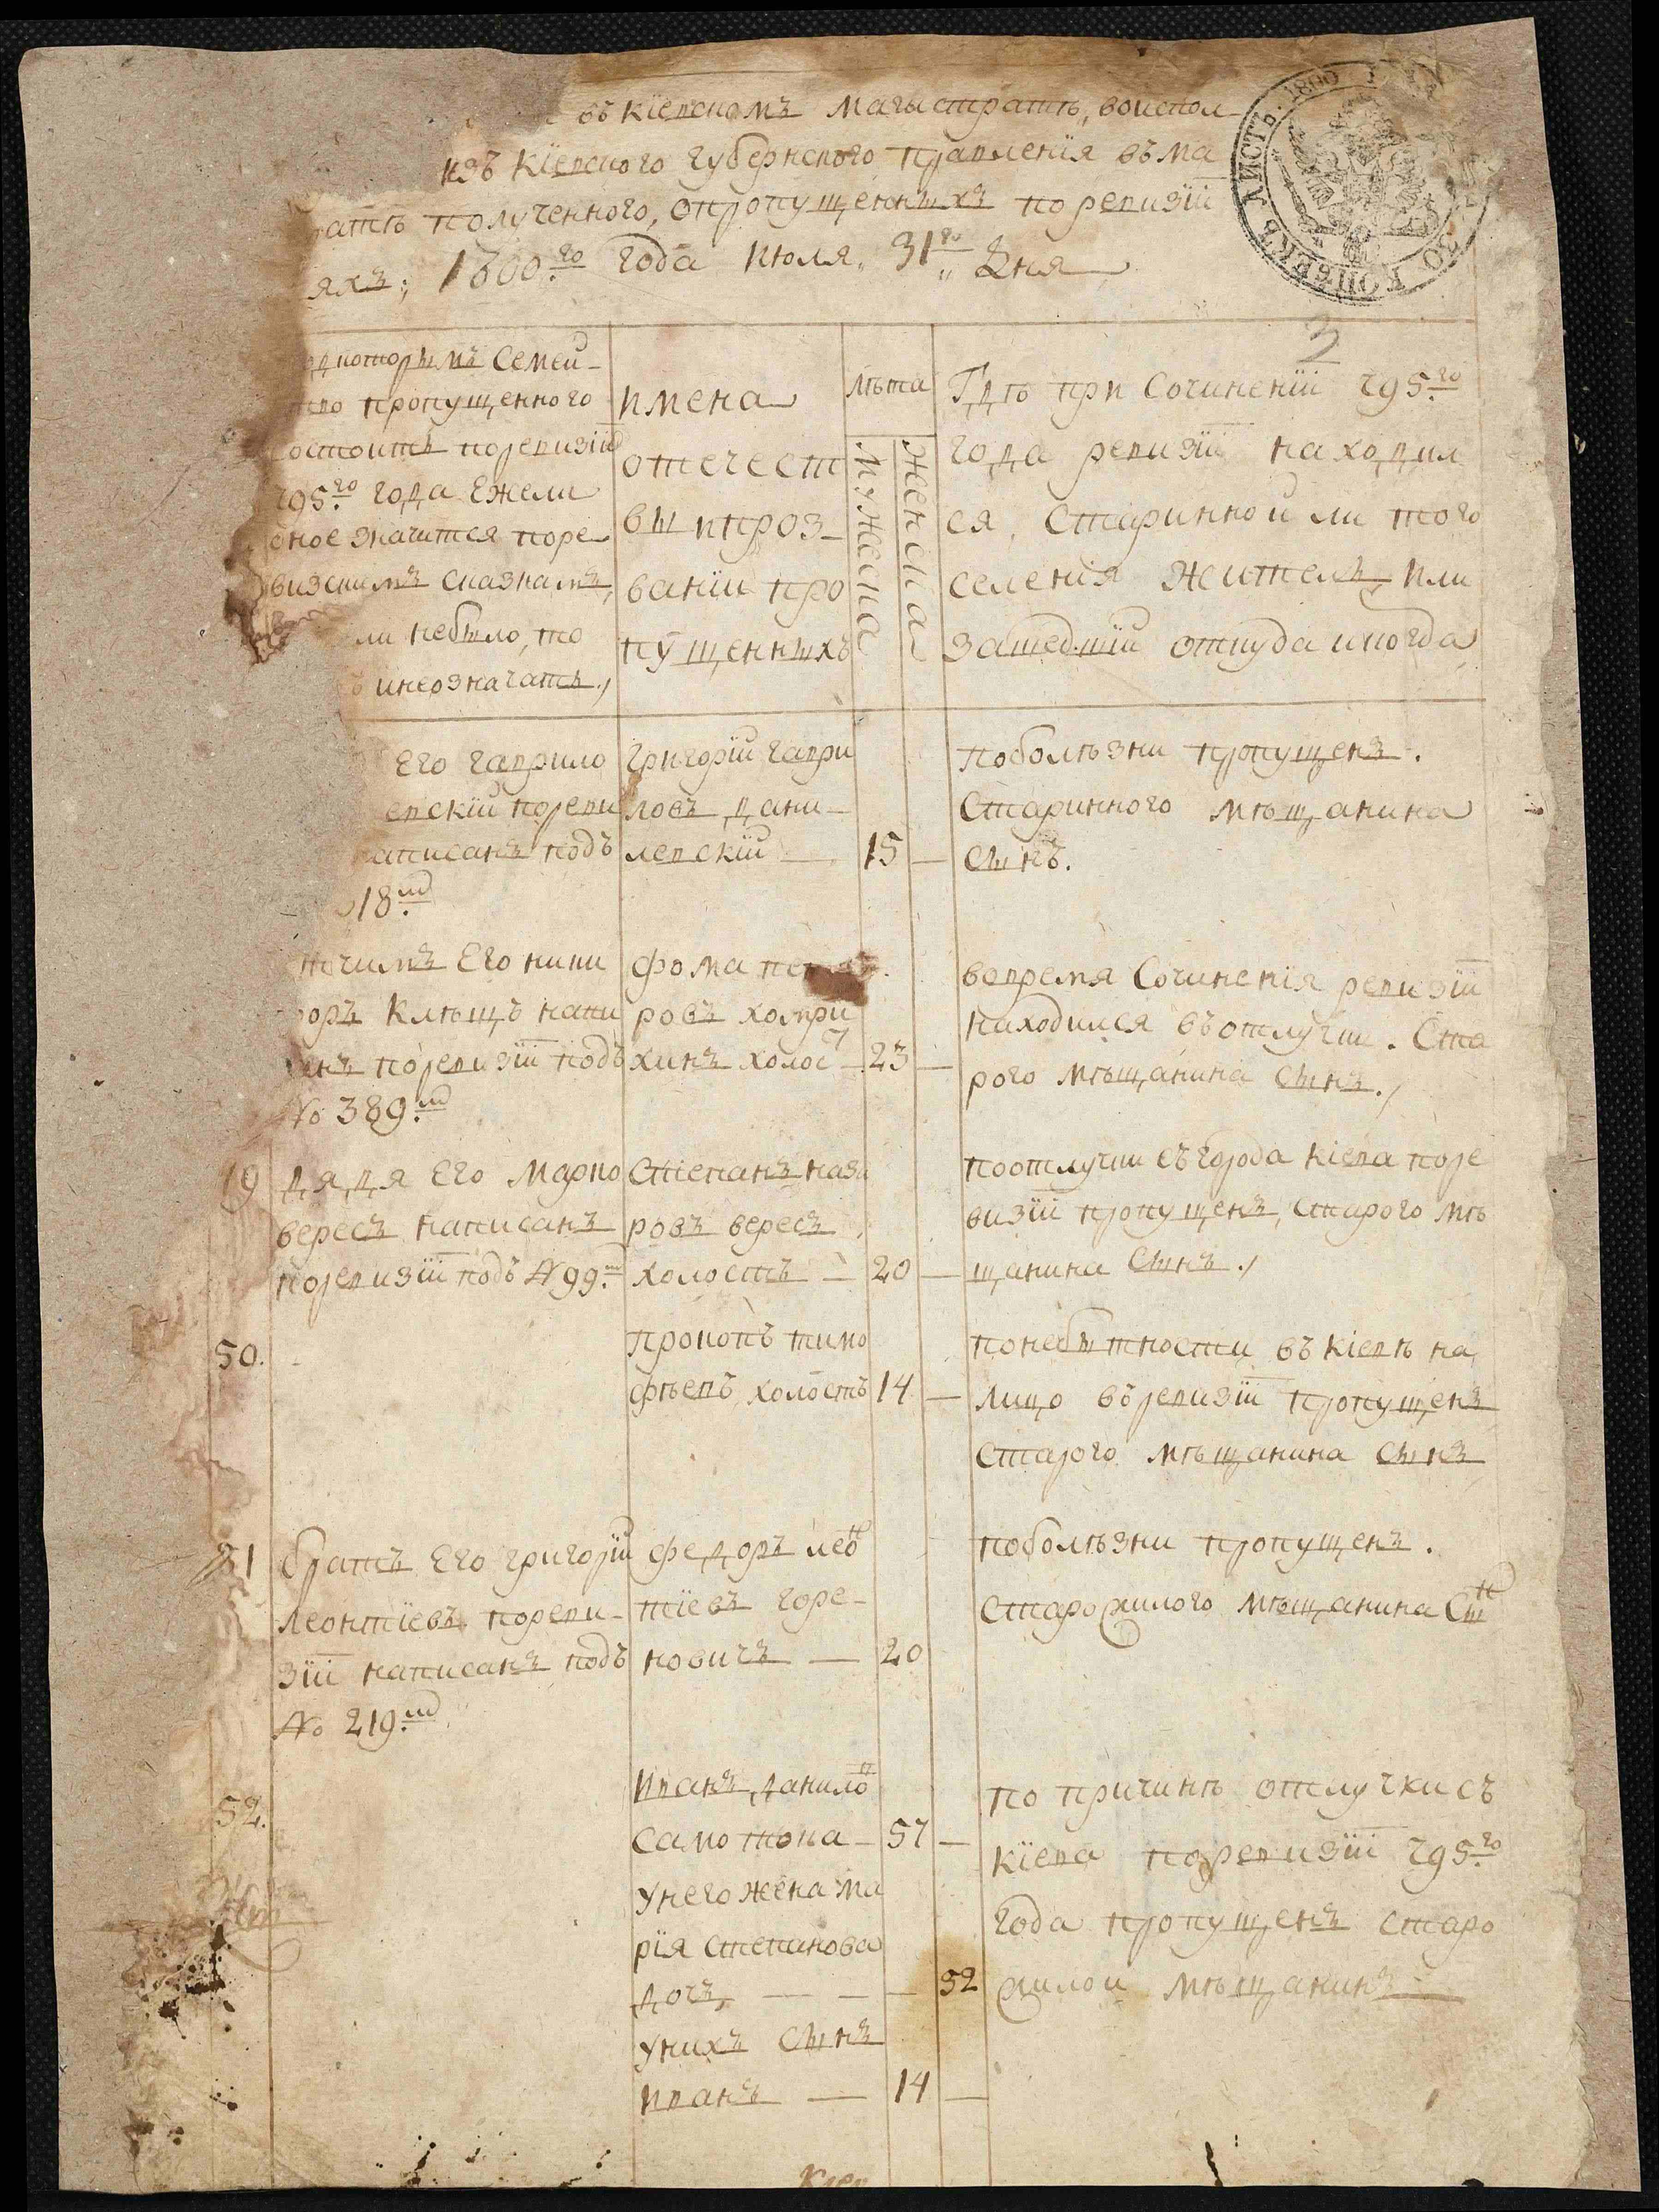 въ Кіевскомъ Магыстратѣ, воиспол-
изъ Кіевского Губернского правленія въ Ма
ратѣ полученного, опропущенныхъ поревизіи
яхъ; 1800.го года июля, 31.го Дня
ЛИСТЪ. 1800
30 КОПѢЕКЪ
3
которымъ Семей-
тво пропущенного
состоитъ поревизіи
795.го года Ежели
оное значится поре
визскимъ сказкамъ,
ли небыло, то
инеозначать.,
имена
отечест
вы ипроз-
ваніи про
пущенныхъ
лѣта
Мужеска
Женска
Гдѣ при Сочиненіи 795.го
года ревизіи находил
ся, Старинной ли того
селенія Жителъ, или
зашедшій откуда икогда
Его гаврило
евскій пореви
написанъ подъ
18.мъ
Григорій гаври
ловъ Дани-
левскій — 15 —
поболѣзни пропущенъ.
Стариннoго мѣщанина
Сынъ.
чимъ Его ники
форъ Клѣщъ напи
санъ поревизіи подъ
№ 389.мъ
фома
ровъ
хинъ холос 23 —
вовремя Сочиненія ревизіи
находился въотлучки. Ста
рого мѣщанина Сынъ.,
49
Дядя Его Марко
вересъ написанъ
поревизіи подъ № 99.мъ
Степанъ наза
ровъ вересъ
холостъ — 20 —
поотлучки съгорода Кіева поре
визіи пропущенъ, старого мѣ
щанина Сынъ.,
50.
прокопъ тимо
фѣевъ холостъ 14 —
понебытности въ Кіевѣ на
лицо въревизіи пропущенъ
Старого мѣщанина Сынъ
51
братъ Его григорій
Леонтіевъ пореви-
зіи написанъ подъ
№ 219.мъ
федоръ лео
тіевъ горе-
новичъ — 20
поболѣзни пропущенъ.
Старожилого мѣщанина Сы
52.
иванъ Данило
самотока — 57 —
унего жена ма
рія Степанова
Дочъ, — — — 52
унихъ Сынъ
иванъ — 14 —
по причинѣ отлучки съ
Кіева поревизіи 795.го
года пропущенъ старо
жилои мѣщанинъ
Кіев